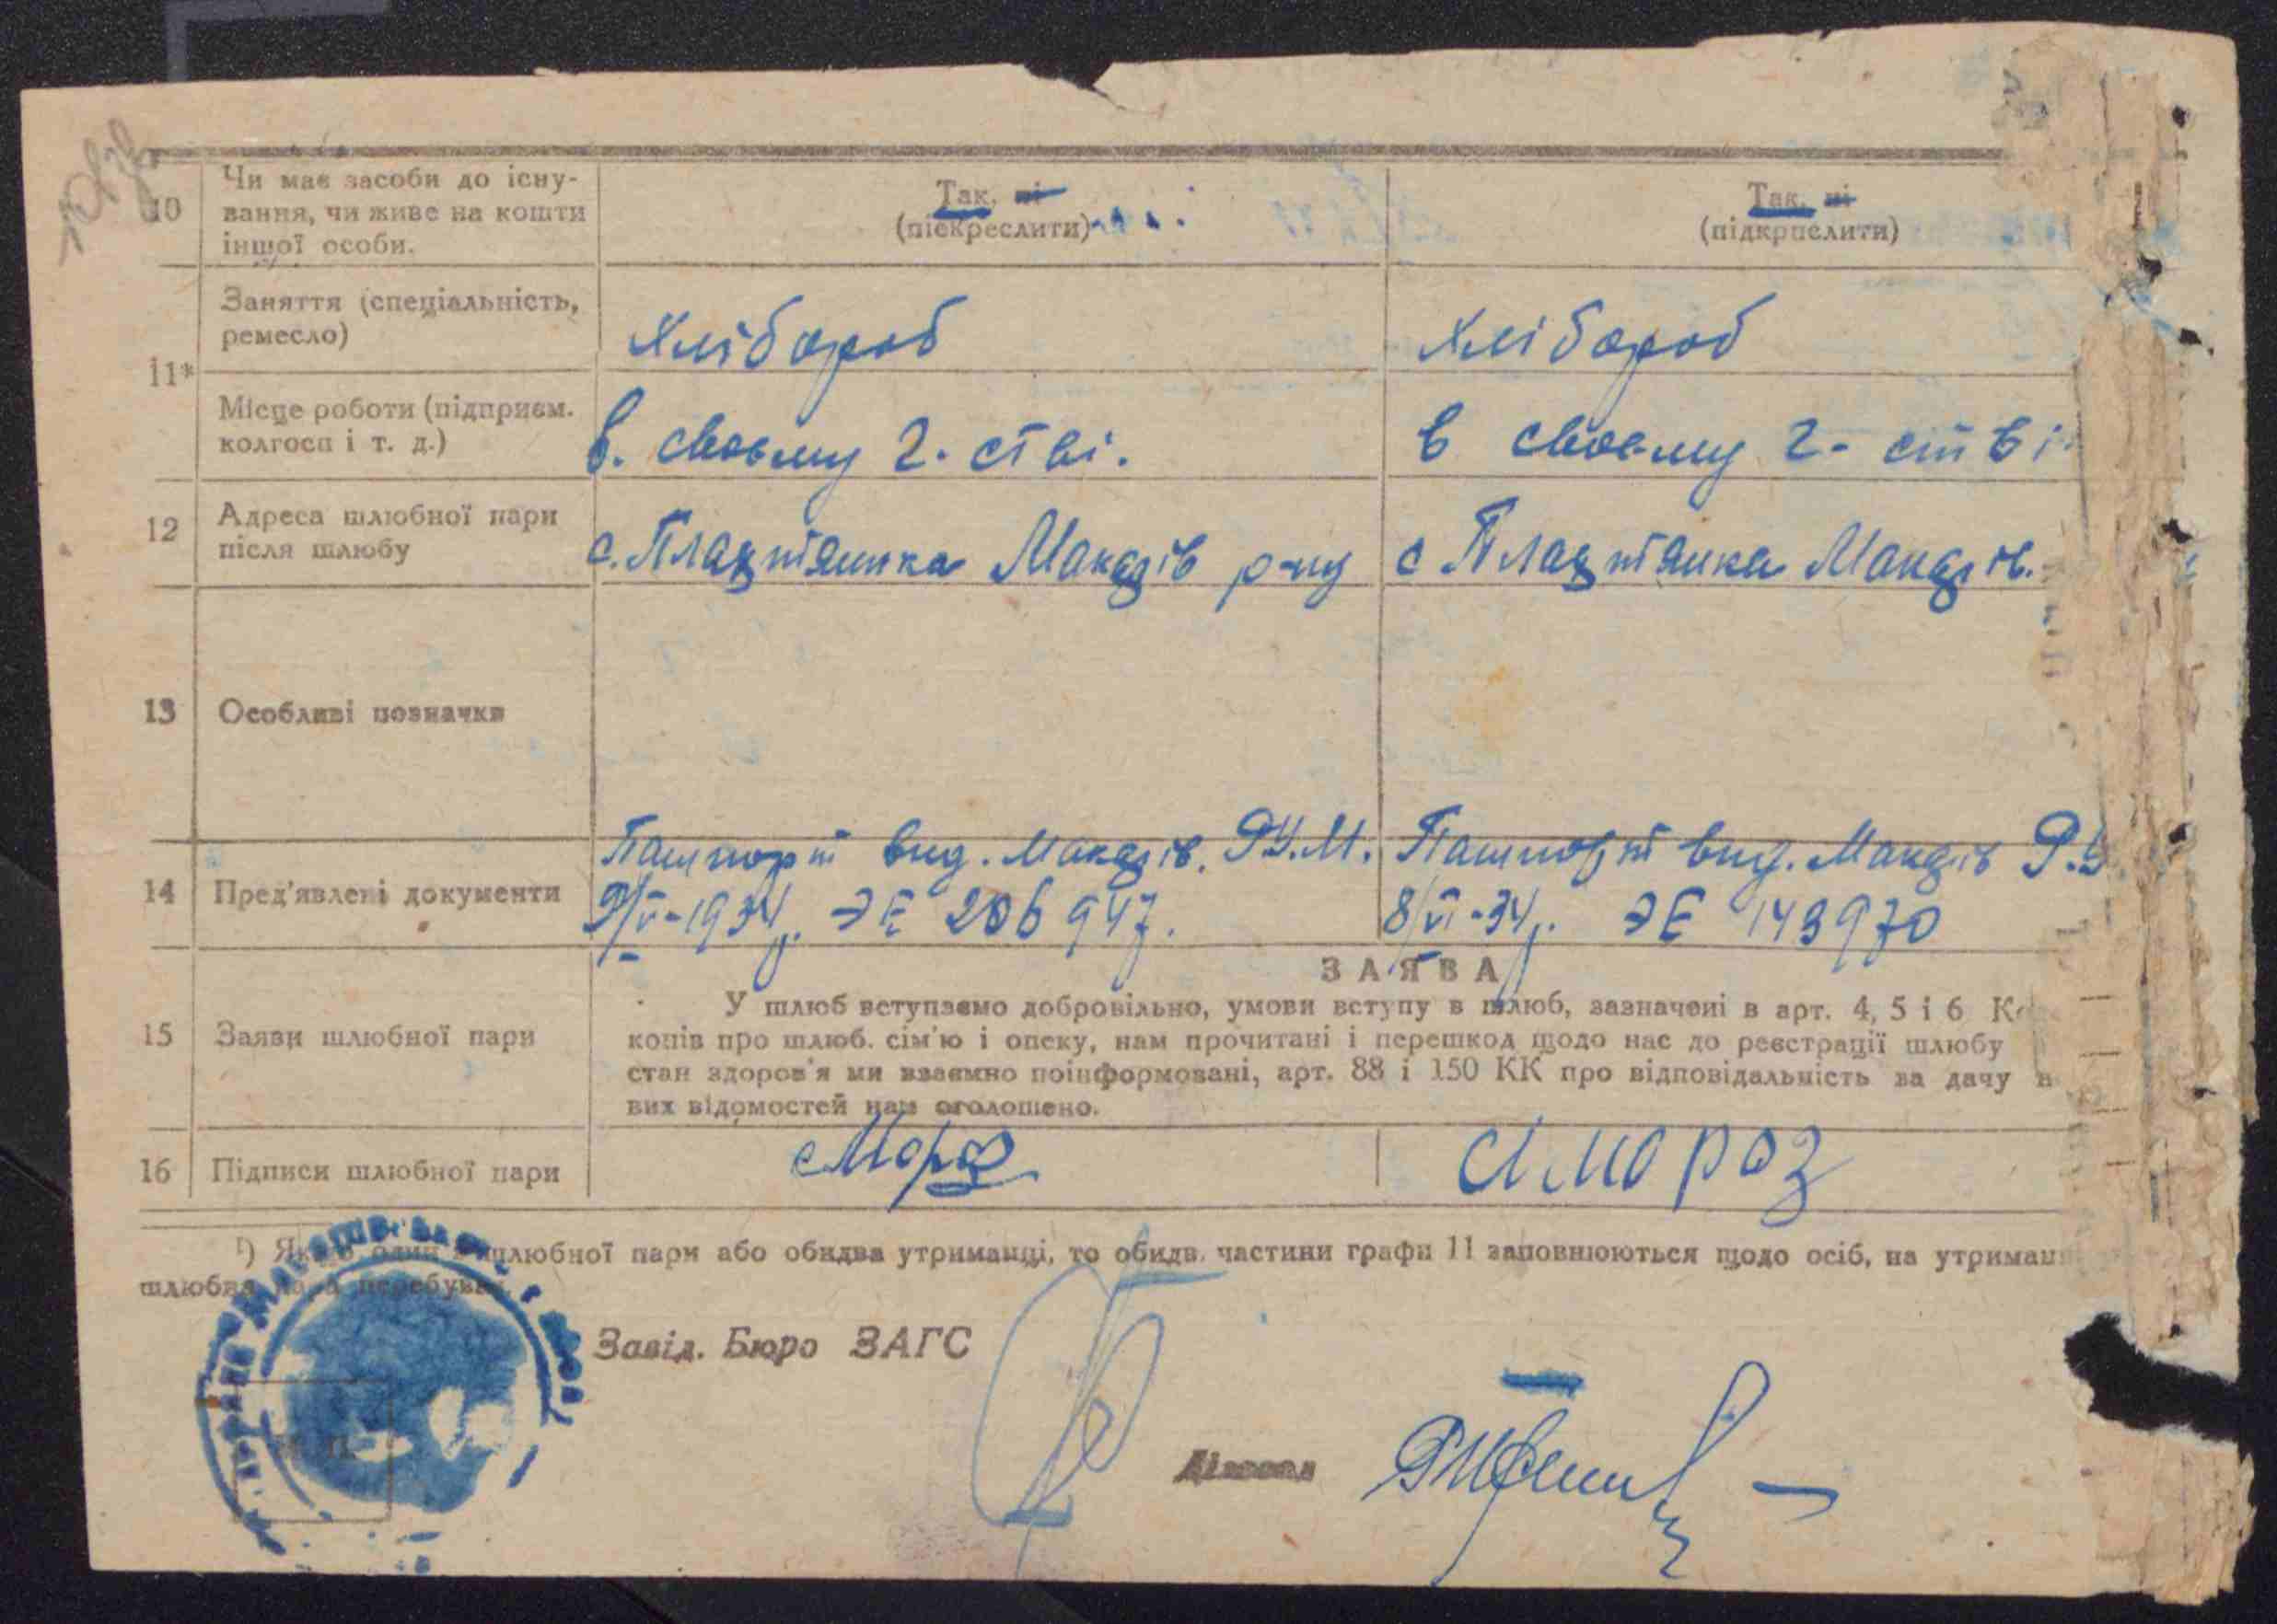 10 Чи має засоби до існу-
вання, чи живе на кошти
іншої особи.
Так, ні
(підкреслити)
Так, ні
(підкрпслити)
11*
Заняття (спеціальність,
ремесло)
Хлібороб
Хлібороб
Місце роботи (підприєм.
колгосп і т. д.)
в. своєму г. стві.
в своєму г- стві
12 Адреса шлюбної пари
після шлюбу
с. Плахтянка Макарів р-ну
с Плахтянка Макарів.
13 Особливі позначки
14 Пред'явлені документи
Пашпорт вид. Макарів. Р.У.М.
9/VI-1934р. ЭЕ 206947.
Пашпорт вид. Макарів Р.У
8/VI-34р. ЭЕ 149970
15 Заяви шлюбної пари
ЗАЯВА
У шлюб вступаємо добровільно, умови вступу в шлюб, зазначені в арт. 4, 5 і 6 Ко
конів про шлюб. сім'ю і опеку, нам прочитані і перешкод щодо нас до реєстрації шлюбу
стан здоров'я ми взаємно поінформовані, арт. 88 і 150 КК про відповідальність за дачу н
вих відомостей нам оголошено.
16 Підписи шлюбної пари
Мороз
Мороз
¹) Якщо один з шлюбної пари або обидва утриманці, то обидв. частини графи 11 заповнюються щодо осіб, на утриман
шлюбна пара перебуває.
Завід. Бюро ЗАГС
М. П.
Діловод